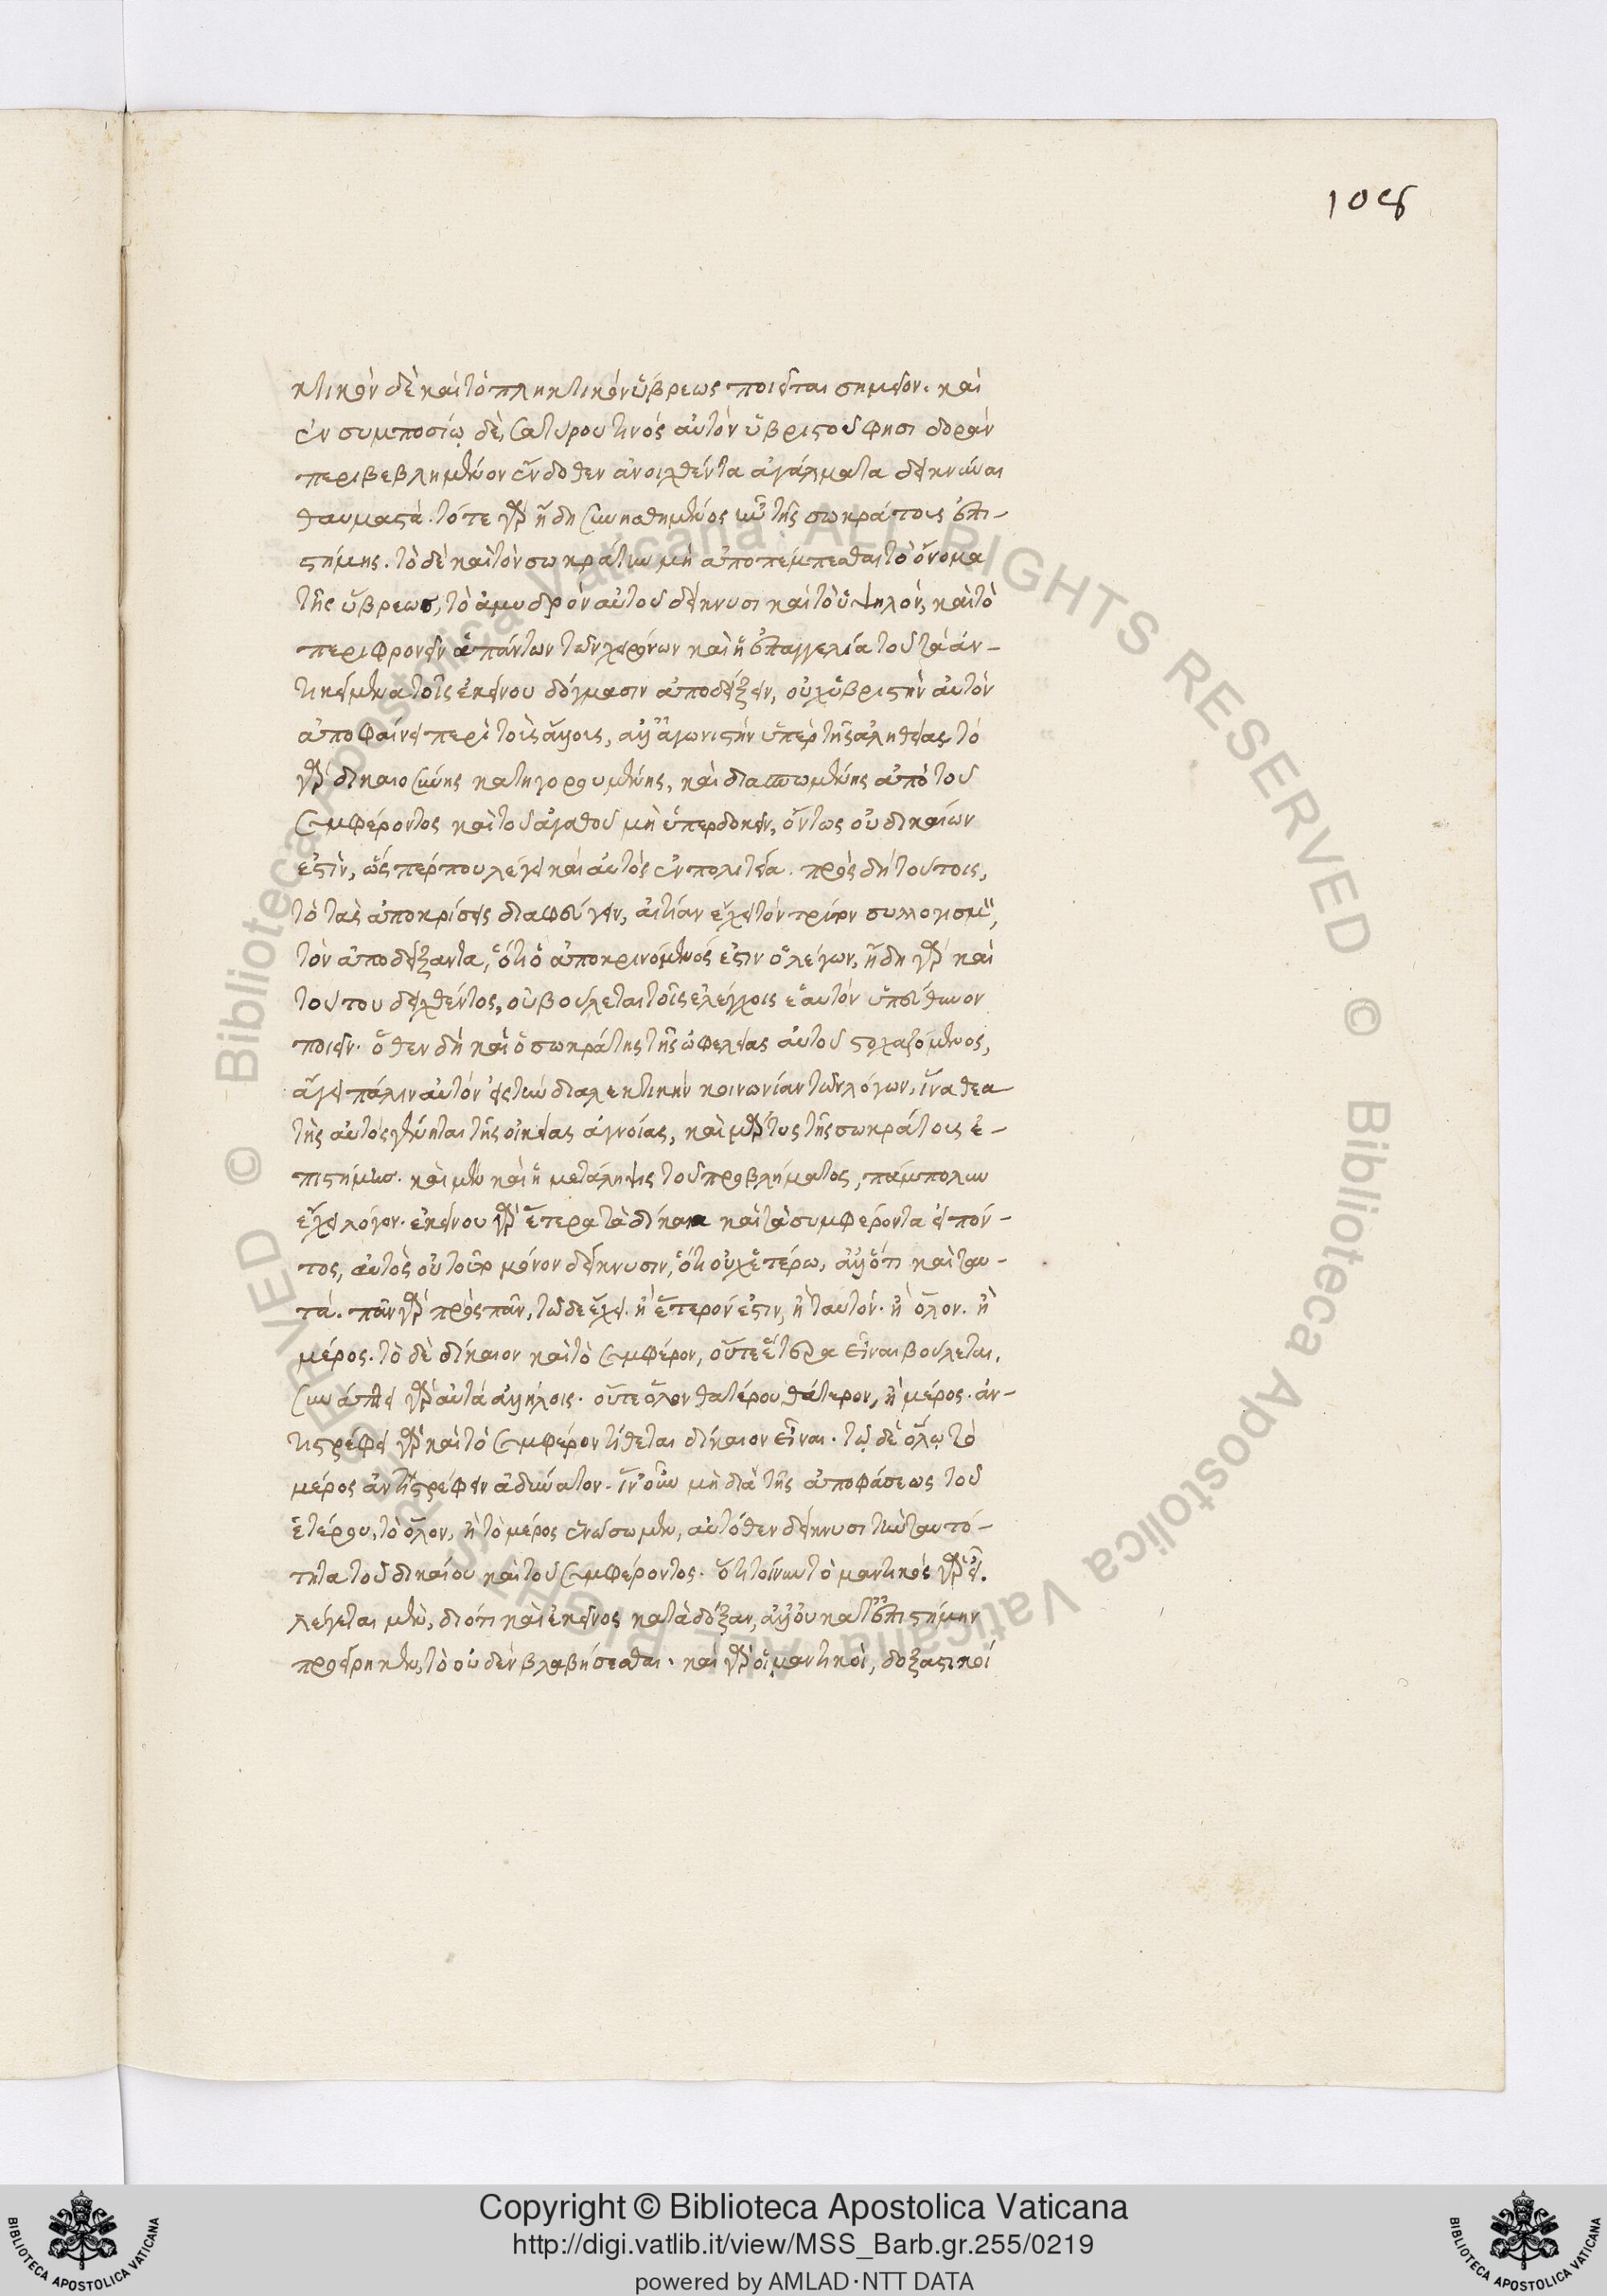 108
κτικὸν δὲ καὶ τὸ πληκτικὸν ὕβρεως ποιεῖται σημεῖον. καὶ
ἐν συμποσίῳ δὲ, σατύρου τινὸς αὐτὸν ὑβριστοῦ φησι δορὰν
περιβεβλημένον ἔνδοθεν ἀνοιχθέντα ἀγάλματα δεικνύναι
θαυμαστά. τότε γὰρ ἤδη συνῃσθημένος ἦν τῆς σωκράτους ἐπι-
στήμης. τὸ δὲ καὶ τὸν σωκράτην μὴ ἀποπέμπεσθαι τὸ ὄνομα
τῆς ὕβρεως, τὸ ἁμυδρὸν αὐτοῦ δείκνυσι καὶ τὸ ὑψηλὸν, καὶ τὸ
περιφρονεῖν ἁπάντων τῶν χειρόνων καὶ ἡ ἐπαγγελία τοῦ τὰ ἀν-
τικείμενα τοῖς ἐκείνου δόγμασιν ἀποδείξειν, οὐχ ὑβριστὴν αὐτὸν
ἀποφαίνει περὶ τοὺς ἄλλους, ἀλλ' ἀγωνιστὴν ὑπὲρ τῆς ἀληθείας. τὸ
γὰρ δικαιοσύνης κατηγορουμένης, καὶ διασπωμένης ἀπὸ τοῦ
συμφέροντος καὶ τοῦ ἀγαθοῦ μὴ ὑπερδοκεῖν, ὄντως οὐ δικαίων
ἐστὶν, ὥσπερ που λέγει καὶ αὐτὸς ἐν πολιτείᾳ. πρὸς δὴ τούτοις,
τὸ τὰς ἀποκρίσεις διαφεύγειν, αἰτίαν ἔχει τὸν τρίτον συλλογισμὸν,
τὸν ἀποδείξαντα, ὅτι ὁ ἀποκρινόμενός ἐστιν ὁ λέγων, ἤδη γὰρ καὶ
τούτου δειχθέντος, οὐ βούλεται τοῖς ἐλέγχοις ἑαυτὸν ὑπεύθυνον
ποιεῖν. ὅθεν δὴ καὶ ὁ σωκράτης τῆς ὠφελείας αὐτοῦ στοχαζόμενος,
ἄγει πάλιν αὐτὸν εἰς τὴν διαλεκτικὴν κοινωνίαν τῶν λόγων, ἵνα θεα
τὴς αὐτὸς γένηται τῆς οἰκείας ἀγνοίας, καὶ μάρτυς τῆς σωκράτους ἐ-
πιστήμης. καὶ μὲν καὶ ἡ μετάληψις τοῦ προβλήματος, πάμπολυν
ἔχει λόγον. ἐκείνου γὰρ ἕτερα τὰ δίκαια καὶ τὰ συμφέροντα εἰπόν-
τος, αὐτὸς οὐ τοῦτο μόνον δείκνυσιν, ὅτι οὐχ ἑτέρω, ἀλλ' ὅτι καὶ ταυ-
τά. πᾶν γὰρ πρὸς πᾶν, τῶδε ἔχει. ἢ ἕτερόν ἐστιν, ἢ ταυτόν. ἢ ὅλον. ἢ
μέρος. τὸ δὲ δίκαιον καὶ τὸ συμφέρον, οὔτε ἕτερα εἶναι βούλεται.
συνάπτει γὰρ αὐτὰ ἀλλήλοις. οὔτε ὅλον θατέρου θάτερον, ἢ μέρος. ἀν-
τιστρέφει γὰρ καὶ τὸ συμφέρον τίθεται δίκαιον εἶναι. τῷ δὲ ὅλῳ τὸ
μέρος ἀντιστρέφειν ἀδύνατον. ἵν' οὖν μὴ διὰ τῆς ἀποφάσεως τοῦ
ἑτέρου, τὸ ὅλον, ἢ τὸ μέρος ἐνώσωμεν, αὐτόθεν δείκνυσι τὴν ταυτό-
τητα τοῦ δικαίου καὶ τοῦ συμφέροντος. ὅτι τοίνυν τὸ μαντικὸς γὰρ εἶ.
λέγεται μὲν, διότι καὶ ἐκεῖνος κατὰ δόξαν, ἀλλ' οὐ κατ' ἐπιστήμην
προείρηκεν, τὸ οὐδὲν βλαβήσεσθαι. καὶ γὰρ οἱ μαντικοὶ, δοξαστικοί
© Biblioteca Apostolica Vaticana. ALL RIGHTS RESERVED © Biblioteca Apostolica Vaticana. ALL RIGHTS RESERVED
Copyright © Biblioteca Apostolica Vaticana
http://digi.vatlib.it/view/MSS_Barb.gr.255/0219
powered by AMLAD·NTT DATA
BIBLIOTECA APOSTOLICA VATICANA
BIBLIOTECA APOSTOLICA VATICANA